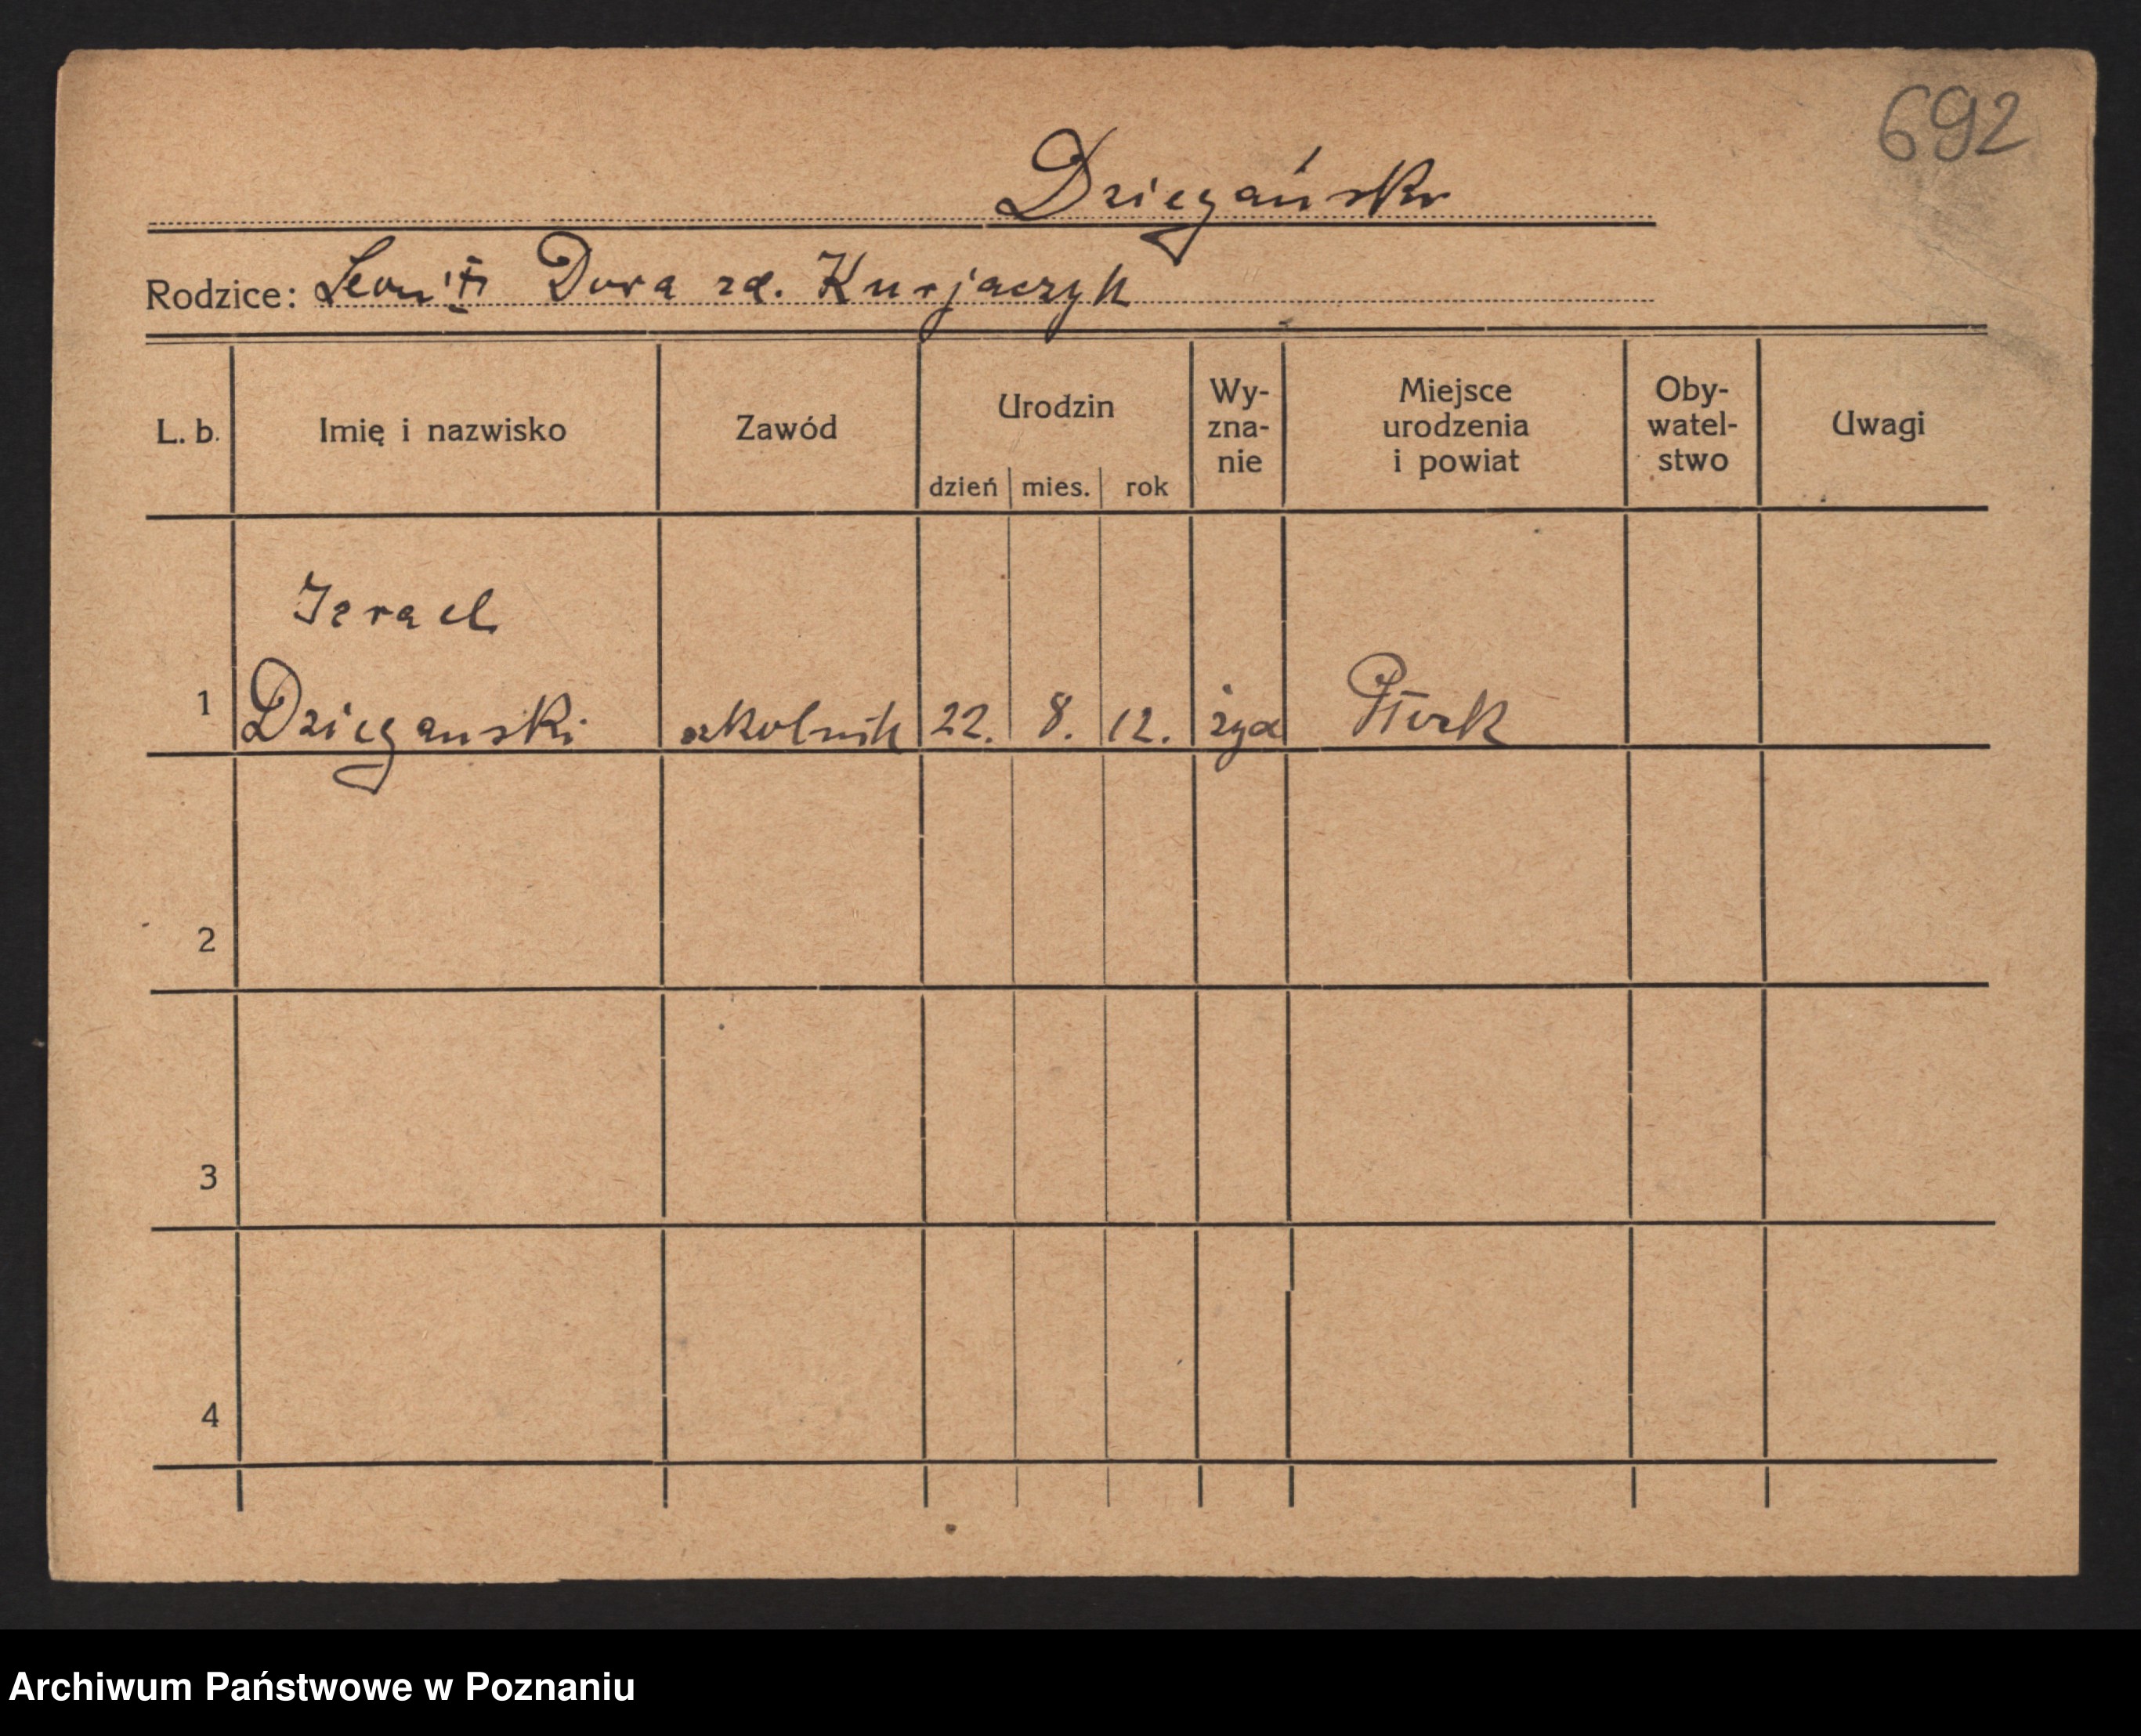 692
Dziegański
Rodzice: Leon i Dora zd. Kurjaczyk
L. b. Imię i nazwisko Zawód Urodzin dzień mies. rok Wy-zna-nie Miejsce urodzenia i powiat Oby-watel-stwo Uwagi
Izrael
1 Dzieganski szkolnik 22. 8. 12. żyd
2
3
4
Archiwum Państwowe w Poznaniu